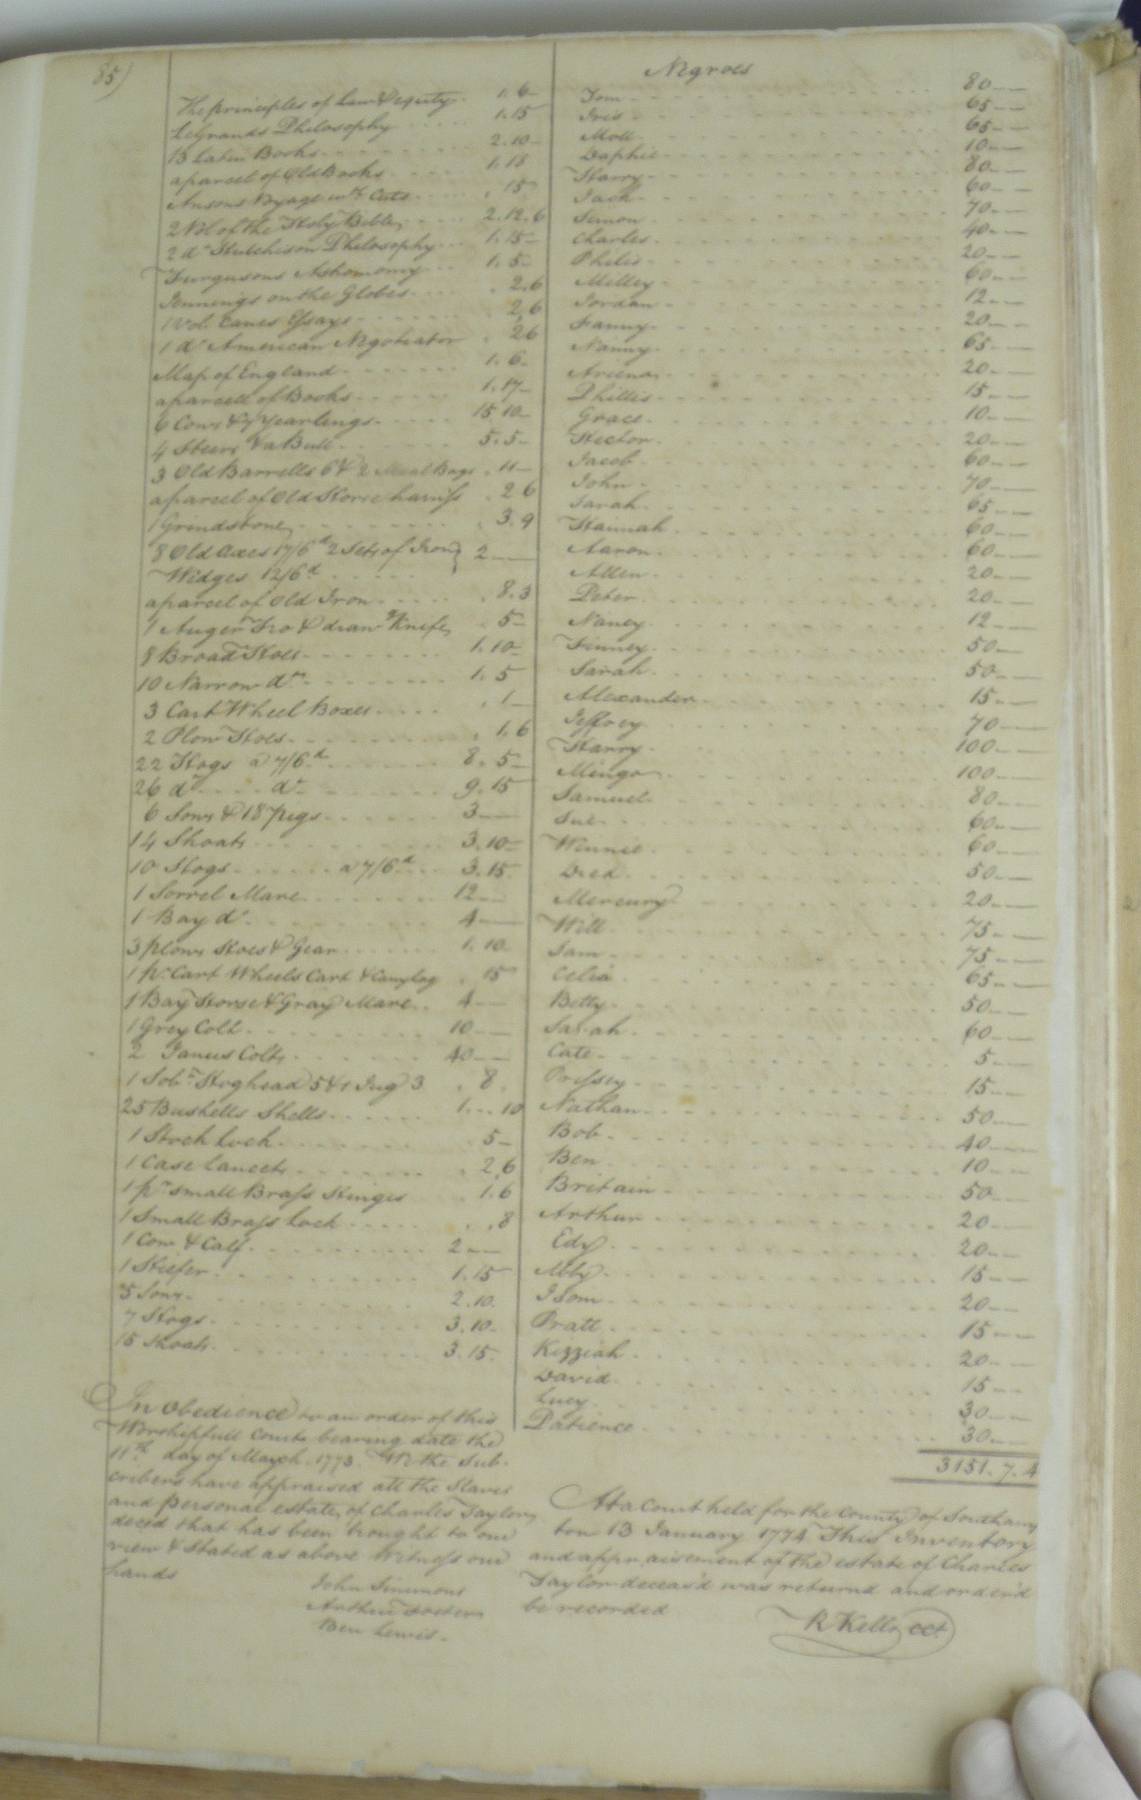 85)
The principles of Law & equity . 1. 6 —
LeGrands Philosophy . . . . . 1. 15
13 Latin Books . . . . . 2. 10 —
a parcel of Old Books . . . . 1. 18
Ansons Voyage wth Cuts . . . . 15
2 Vol of the Holy Bible . . . . 2. 12. 6
2 do Hutchison Philosophy . . . 1. 15 —
Furgusons Astronomy . . . 1. 5 —
Jennings on the Globes . . . . . 2. 6
1 vol. Essays . . . . . . 2. 6
1 do American Negotiator . 2 6
Map of England . . . . . . . 1. 6 —
a parcell of Books . . . . . 1. 17 —
6 Cows & 7 Yearlings . . . . . 15 10 —
4 Steers & a Bull . . . . . 5. 5 —
3 Old Barrells 6 & 2 Meal Bags . 11 —
a parcel of Old Horse harniss . 2 6
1 Grindstone . . . . . . . 3. 9
8 Old Axes 17/6d 2 Sets of Iron } 2 —
Widges 12/6d . . . . .
a parcel of Old Iron . . . . . . 8. 3
1 Auger Fro & drawg Knife . 5 —
8 Broad Hoes . . . . . . . 1. 10 —
10 Narrow do . . . . . . . 1. 5
3 Cart Wheel Boxes . . . . . 1 —
2 Plow Hoes . . . . . . . . 1. 6
22 Hogs a 7/6d . . . . . . 8. 5 —
26 do . . . . do . . . . . . 9. 15
6 Sows & 18 pigs . . . . . . 3 —
14 Shoats . . . . . . . . 3. 10 —
10 Hogs . . . . . . a 7/6d . . . 3. 15
1 Sorrel Mare . . . . . . 12 —
1 Bay do . . . . . . . . 4 —
3 plows Hoes & Gear . . . . . 1. 10
1 pr. Cart Wheels Cart & . 15
1 Bay Horse & Gray Mare . . 4 —
1 Grey Colt . . . . . . . 10 —
2 Janus Colts . . . . . . 40 —
1 Tobo Hoghead 5 & 1 Jug 3 . 8 .
25 Bushells Shells . . . . . 1 . . . 10
1 Stock lock . . . . . . . 5 —
1 Case lancets . . . . . . . 2. 6
1 pr small Brass Hinges . 1. 6
1 Small Brass lock . . . . . . 8
1 Cow & Calf . . . . . . . 2 —
1 Heifer . . . . . . . . 1. 15
5 Sows . . . . . . . . 2. 10.
7 Hogs . . . . . . . . 3. 10 —
15 Shoats . . . . . . . . 3. 15.
In Obedience to an order of this
Worshipfull Court bearing date the
11th day of March 1773. We the Sub-
cribers have appraised all the Slaves
and personal estate of Charles Taylor
decd that has been brought to our
view & Stated as above Witness our
hands
John Simmons
Arthur Foster
Ben Lewis.
Negroes
Tom . . . 80 —
Iris . . . 65 —
Moll . . . 65 —
Daphie . . . 10 —
Harry . . . 80 —
Jack . . . 60 —
Simon . . . 70 —
Charles . . . 40 —
Philis . . . 20 —
Milley . . . 60 —
Jordan . . . 12 —
Fanny . . . 20 —
Nanny . . . 65 —
Arcena . . . 20 —
Phillis . . . 15 —
Grace . . . 10 —
Hector . . . 20 —
Jacob . . . 60 —
John . . . 70 —
Sarah . . . 65 —
Hannah . . . 60 —
Aaron . . . 60 —
Allen . . . 20 —
Peter . . . 20 —
Nancy . . . 12 —
Finney . . . 50 —
Sarah . . . 50 —
Alexander . . . 15 —
Jeffrey . . . 70 —
Harry . . . 100 —
Mingo . . . 100 —
Samuel . . . 80 —
Sue . . . 60 —
Winnie . . . 60 —
Dred . . . 50 —
Mercury . . . 20 —
Will . . . 75 —
Sam . . . 75 —
Celia . . . 65 —
Betty . . . 50 —
Sarah . . . 60 —
Cate . . . 5 —
Prissey . . . 15 —
Nathan . . . 50 —
Bob . . . 40 —
Ben . . . 10 —
Britain . . . 50 —
Arthur . . . 20 —
Edy . . . 20 —
Abby . . . 15 —
Isom . . . 20 —
Pratt . . . 15 —
Kizziah . . . 20 —
David . . . 15 —
Lucy . . . 30 —
Patience . . . 30 —
3151. 7. 4
At a Court held for the County of Southamp
ton 13 January 1774 This Inventory
and appraisement of the estate of Charles
Taylor deceas'd was returnd and orderd
be recorded
R Kello CCt